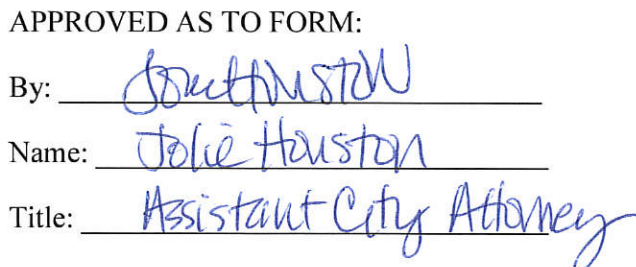 APPROVED AS TO FORM:
By: Jolie Houston
Name: Jolie Houston
Title: Assistant City Attorney